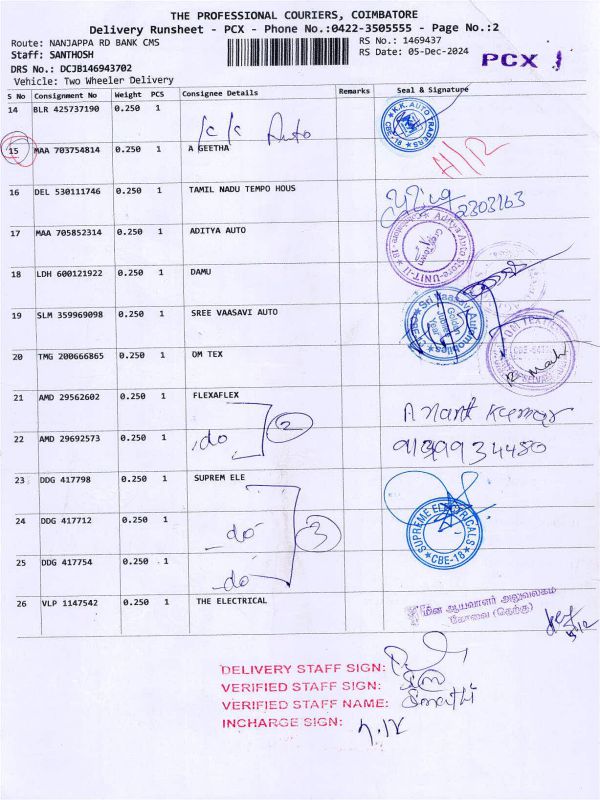 THE PROFESSIONAL COURIERS, COIMBATORE
Delivery Runsheet - PCX - Phone No.:0422-3505555 - Page No.:2
Route: NANJAPPA RD BANK CMS
RS No.: 1469437
Staff: SANTHOSH
RS Date: 05-Dec-2024
PCX 1
DRS No.: DCJB146943702
Vehicle: Two Wheeler Delivery
S No Consignment No Weight PCS Consignee Details Remarks Seal & Signature
14 BLR 425737190 0.250 1 K K Auto
K.K. AUTO TRADERS CBE-18
15 MAA 703754814 0.250 1 A GEETHA
16 DEL 530111746 0.250 1 TAMIL NADU TEMPO HOUS
2303163
17 MAA 705852314 0.250 1 ADITYA AUTO
Aditya Auto Store-UNIT-II
18 LDH 600121922 0.250 1 DAMU
19 SLM 359969098 0.250 1 SREE VAASAVI AUTO
Sri Vaasavi Automobiles
Golden Jubilee Year
20 TMG 200666865 0.250 1 OM TEX
21 AMD 29562602 0.250 1 FLEXAFLEX
Anant Kumar
22 AMD 29692573 0.250 1 do 2
23 DDG 417798 0.250 1 SUPREM ELE
24 DDG 417712 0.250 1 do 3
SUPREME ELECTRICALS CBE-18
25 DDG 417754 0.250 1 do
26 VLP 1147542 0.250 1 THE ELECTRICAL
மின் ஆய்வாளர் அலுவலகம்
கோவை (தெற்கு)
DELIVERY STAFF SIGN:
VERIFIED STAFF SIGN:
VERIFIED STAFF NAME:
INCHARGE SIGN: